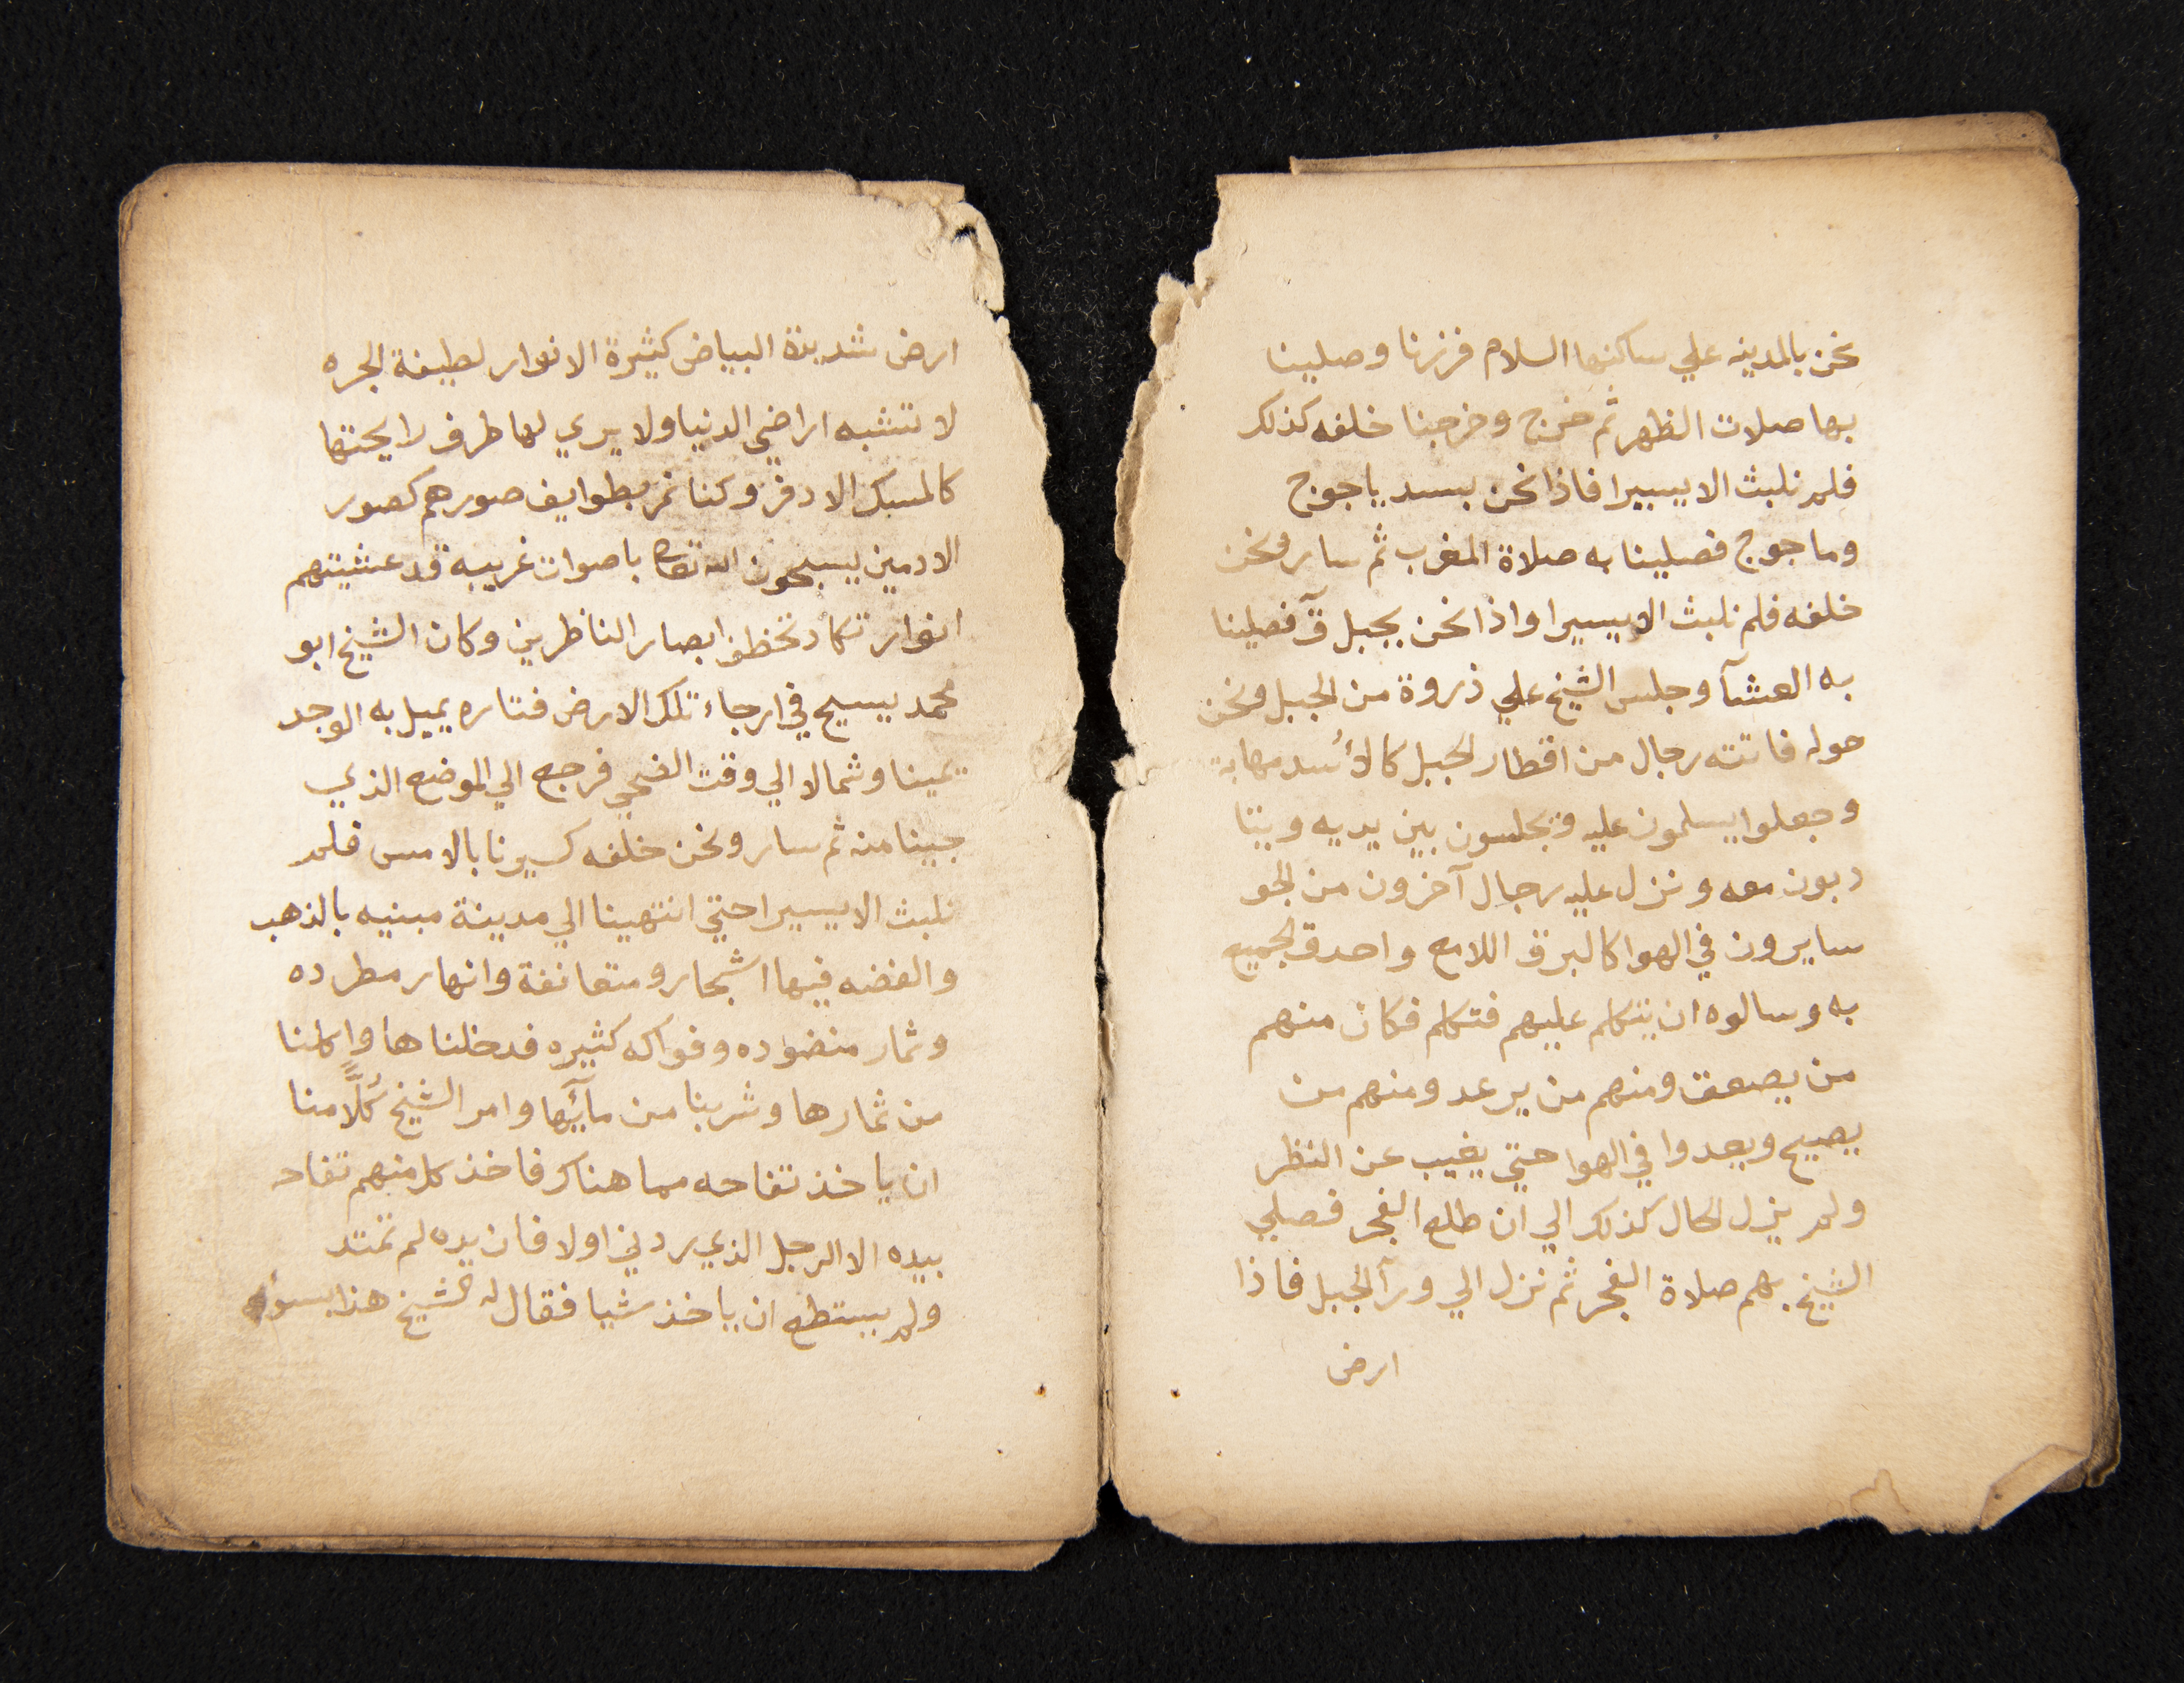 نحن بالمدينه علي ساكنها السلام فزرنا وصلينا
بها صلات الظهر ثم خرج وخرجنا خلفه كذلك
فلم نلبث الا يسيرا فاذا نحن بسد ياجوج
وماجوج فصلينا به صلاة المغرب ثم سار ونحن
خلفه فلم نلبث الا يسيرا واذا نحن بجبل قٓ فصلينا
به العشآ وجلس الشيخ علي ذروة من الجبل ونحن
حوله فاتته رجال من اقطار الجبل كالأسد مهابة
وجعلوا يسلمون عليه ويجلسون بين يديه ويتا
دبون معه ونزل عليه رجال آخرون من الجو
سايرون في الهوا كالبرق اللامع واحدق الجميع
به وسالوه ان يتكلم عليهم فتكلم فكان منهم
من يصعق ومنهم من يرعد ومنهم من
يصيح ويعدوا في الهوا حتي يغيب عن النظر
ولم يزل الحال كذلك الي ان طلع الفجر فصلي
الشيخ بهم صلاة الفجر ثم نزل الي ورآ الجبل فاذا
ارض
ارض شديدة البياض كثيرة الانوار لطيفة الجره
لا تشبه اراضي الدنيا ولا يري لها طرف رايحتها
كالمسك الادفر وكنا نمر بطوايف صورهم كصور
الادمين يسبحون الله تعالى باصوات غريبه قد عشيتهم
انوار تكاد تخطف ابصار الناظرين وكان الشيخ ابو
محمد يسيح في ارجاء تلك الارض فتاره يميل به الوجد
يمينا وشمالا الي وقت الضحي فرجع الي الموضع الذي
جينا منه ثم سار ونحن خلفه كسيرنا بالامس فلم
نلبث الا يسيرا حتي انتهينا الي مدينة مبنيه بالذهب
والفضه فيها اشجار ومتعانقة وانهار مطرده
وثمار منضوده وفواكه كثيره فدخلناها واكلنا
من ثمارها وشربنا من مآئها وامر الشيخ كُلًّا منا
ان ياخذ تفاحه مما هناك فاخذ كل منهم تفاحه
بيده الا الرجل الذي ردني اولا فان يده لم تمتد
ولم يستطع ان ياخذ شيا فقال له الشيخ هذا بسوء